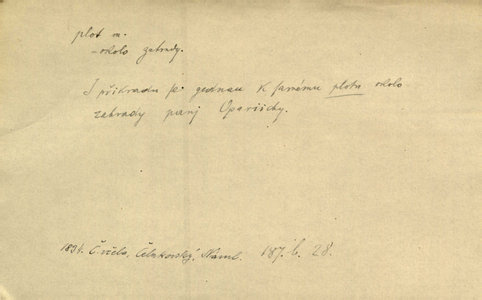 plot m.
- okolo zahrady.
I přikradu se gednau k samému plotu okolo
zahrady panj Opariichy.
1834. Č. včela, Čelakovský, Naml. 187. b. 28.